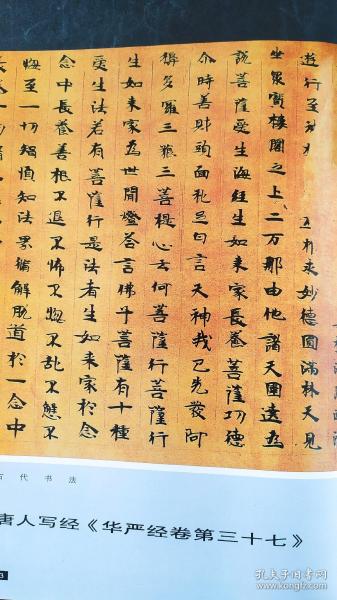 遊行至 妙德圓滿林天見
坐眾寶樓閣之上二万那由他諸天圍遶為
說菩薩受生海經生如来家長養菩薩功德
尒時善財頭面礼足白言天神我已先發阿
耨多羅三藐三菩提心云何菩薩行菩薩行
生如来家為世間燈荅言佛子菩薩有十種
受生法若有菩薩行是法者生如来家於念
念中長養善根不退不怖不惓不乱不懈不
悔至一切智順知法界脩解脱道於一念中
古代书法
唐人写经《华严经卷第三十七》
3
孔夫子旧书网